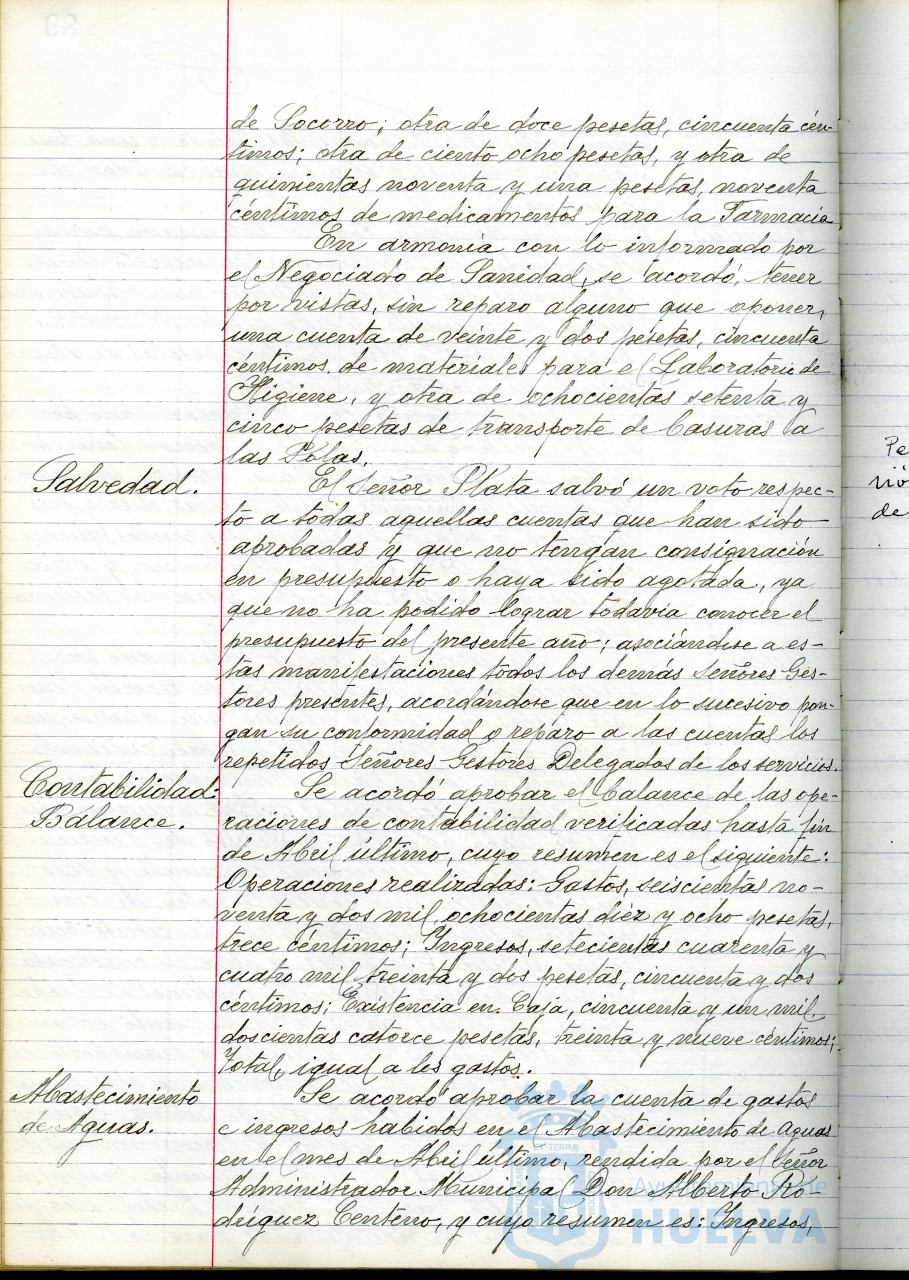 de Socorro; otra de doce pesetas, cincuenta cén-
timos; otra de ciento ocho pesetas, y otra de
quinientas noventa y una pesetas, noventa
céntimos de medicamentos para la Farmacia
En armonia con lo informado por
el Negociado de Sanidad, se acordó, tener
por vistas, sin reparo alguno que oponer,
una cuenta de veinte y dos pesetas, cincuenta
céntimos, de materiales para el Laboratorio de
Higiene, y otra de ochocientas setenta y
cinco pesetas de transporte de basuras a
las Polas.
Salvedad.
El Señor Plata salvó un voto respec-
to a todas aquellas cuentas que han sido
aprobadas y que no tengan consignación
en presupuesto o haya sido agotada, ya
que no ha podido lograr todavia conocer el
presupuesto del presente año; asociándose a es-
tas manifestaciones todos los demás Señores Ges-
tores presentes, acordándose que en lo sucesivo pon-
gan su conformidad o reparo a las cuentas los
repetidos Señores Gestores Delegados de los servicios.
Contabilidad:
Balance.
Se acordó aprobar el balance de las ope-
raciones de contabilidad verificadas hasta fin
de Abril último, cuyo resumen es el siguiente:
Operaciones realizadas: Gastos, seiscientas no-
venta y dos mil, ochocientas diez y ocho pesetas,
trece céntimos; Ingresos, setecientas cuarenta y
cuatro mil treinta y dos pesetas, cincuenta y dos
céntimos; Existencia en Caja, cincuenta y un mil
doscientas catorce pesetas, treinta y nueve céntimos;
Total, igual a los gastos.
Abastecimiento
de Aguas.
Se acordó aprobar la cuenta de gastos
e ingresos habidos en el Abastecimiento de Aguas
en el mes de Abril último, rendida por el Señor
Administrador Municipal Don Alberto Ro-
dríguez Centeno, y cuyo resumen es: Ingresos,
Pe
nió
de
89
Ayuntamiento de
HUELVA